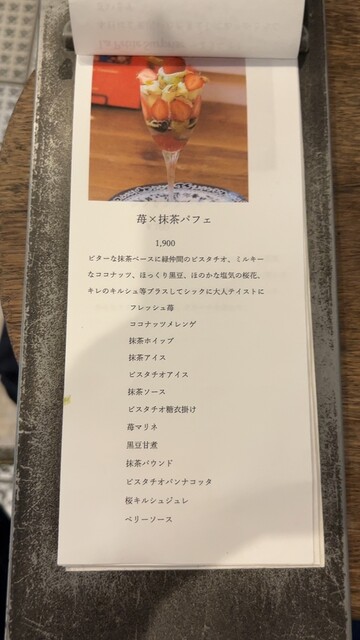 苺×抹茶パフェ
1,900
ビターな抹茶ベースに緑仲間のピスタチオ、ミルキー
なココナッツ、ほっくり黒豆、ほのかな塩気の桜花、
キレのキルシュ等プラスしてシックに大人テイストに
フレッシュ苺
ココナッツメレンゲ
抹茶ホイップ
抹茶アイス
ピスタチオアイス
抹茶ソース
ピスタチオ糖衣掛け
苺マリネ
黒豆甘煮
抹茶パウンド
ピスタチオパンナコッタ
桜キルシュジュレ
ベリーソース